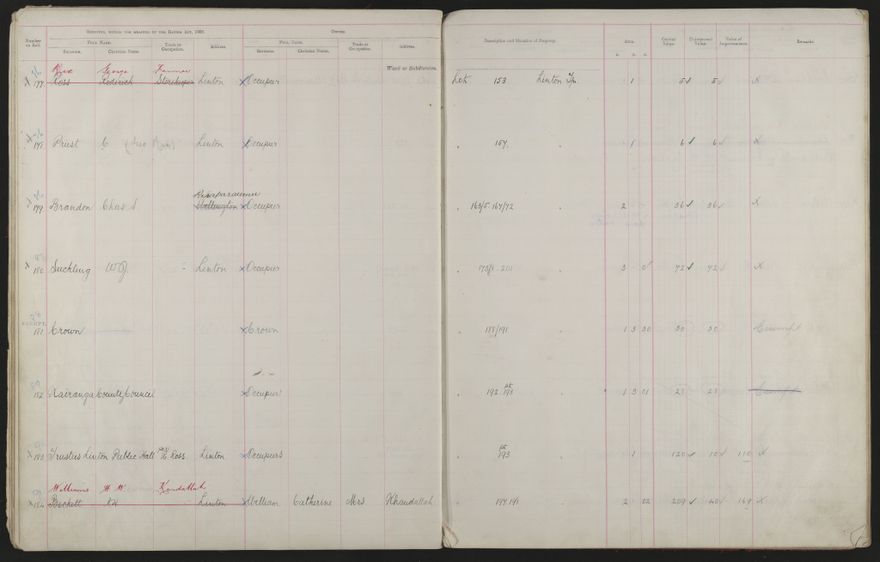 Occupier, within the meaning of the Rating Act, 1908.
Owner.
Description and Situation of Property.
Area.
Capital Value.
Unimproved Value.
Value of Improvements.
Remarks.
Number in Roll.
Full Name.
Trade or Occupation.
Address.
Full Name.
Trade or Occupation.
Address.
Surname.
Christian Names.
Surname.
Christian Names.
A. R. P.
Ward or Subdivision
George Farmer
177 Ross Roderick Storekeeper Linton Occupier Lot 153 Linton Tp. 1 5 5 X
178 Priest C Linton Occupier 154 1 6 6 X
Paraparaumu
179 Brandon Chas S Wellington Occupier 163/5 167/72 2 36 36 X
180 Suckling W J Linton Occupier 72 72 X
181 Crown Crown 183/191 1 3 30 30 30 Exempt
182 Kairanga County Council Occupier 192 pt 193 1 3 01 23 23
183 Trustees Linton Public Hall Ross Linton Occupiers pt 193 1 120 10 110 X
Williams W W Kandallah
184 Beckett Linton William Catherine Mrs Khandallah 2 22 209 40 169 X